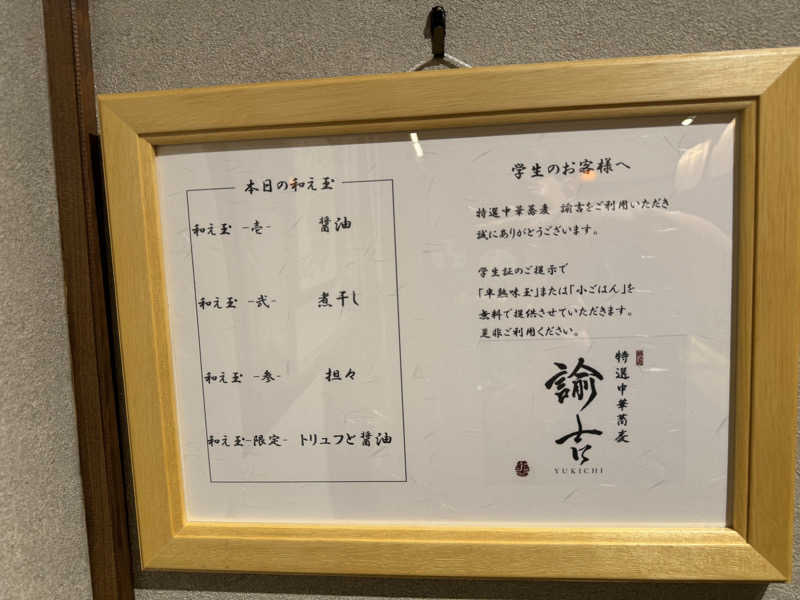 本日の和え玉
和え玉 -壱- 醤油
和え玉 -弐- 煮干し
和え玉 -参- 担々
和え玉-限定- トリュフと醤油
学生のお客様へ
特選中華蕎麦 諭吉をご利用いただき
誠にありがとうございます。
学生証のご提示で
「半熟味玉」または「小ごはん」を
無料で提供させていただきます。
是非ご利用ください。
特選中華蕎麦
諭吉
YUKICHI